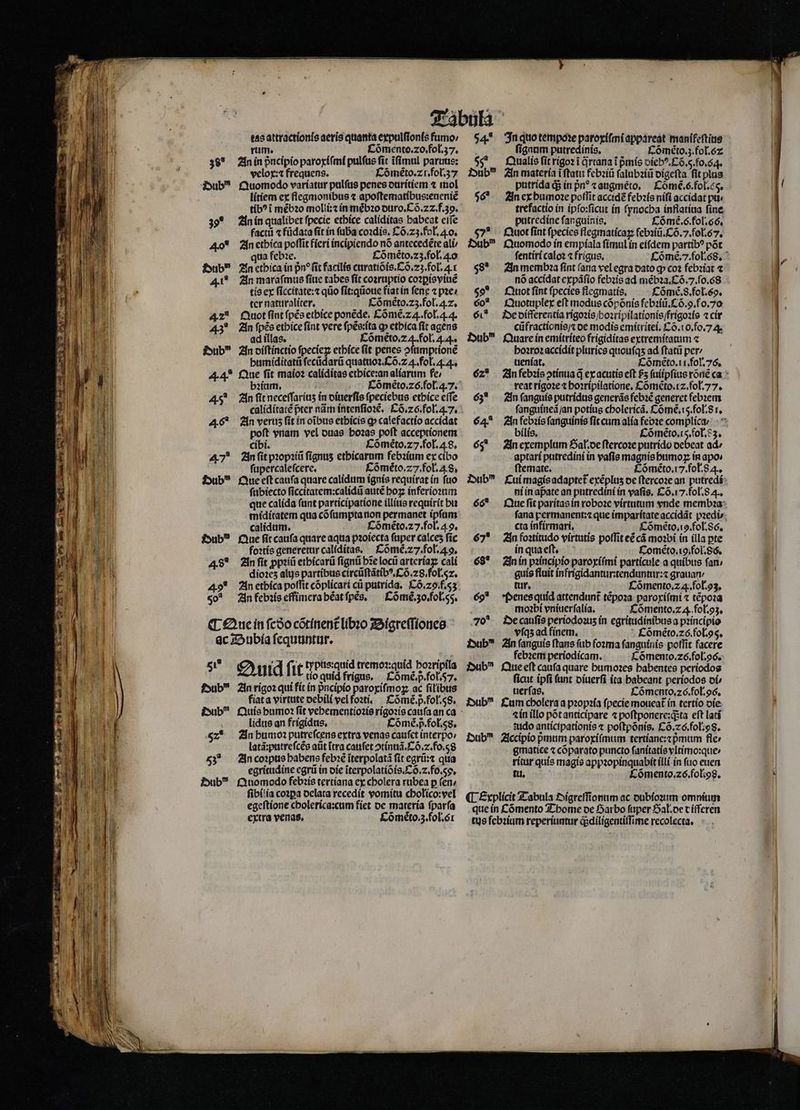 Tabula
tas attractionis aeris quanta expulsionis fumo/
rum. Cõmento.20.fol.37.
38ª An in pñcipio paroxismi pulsus sit issimul paruus:
velox:⁊ frequens. Cõmẽto.21.fol.37
Dubᵐ Quomodo variatur pulsus penes duritiem ⁊ mol
litiem ex flegmonibus ⁊ apostematibus:eueniẽ
tibꝰ ĩ mẽbro molli:⁊ in mẽbro duro.Cõ.22.f.39.
39ª An in qualibet specie ethice caliditas habeat esse
factũ ⁊ fũdata sit in suba cordis. Cõ.23.fol.40.
40ª An ethica possit fieri incipiendo nõ antecedẽte ali/
qua febre. Cõmẽto.23.fol.40
Dubᵐ An ethica in pñᵒ sit facilis curatiõis.Cõ.23.fol.41
41ª An marasmus siue tabes sit corruptio corpis viuẽ
tis ex siccitate:⁊ qũo sit:qũoue fiat in sene ⁊ pre/
ter naturaliter. Cõmẽto.23.fol.42.
42ª Quot sint spẽs ethice ponẽde. Cõmẽ.24.fol.44.
43ª An spẽs ethice sint vere spẽs:ita ꝙ ethica sit agens
ad illas. Cõmẽto.24.fol.44.
Dubᵐ An distinctio specieꝝ ethice sit penes ↄsumptionẽ
humiditatũ secũdarũ quattuor.Cõ.24.fol.44.
44ª Que sit maior caliditas ethice:an aliarum fe/
brium. Cõmẽto.26.fol.47.
45ª An sit necessarius in diuersis speciebus ethice esse
caliditatẽ ꝑter nãm intensiorẽ. Cõ.26.fol.47.
46ª An verus sit in oĩbus ethicis ꝙ calefactio accidat
post vnam vel duas horas post acceptionem
cibi. Cõmẽto.27.fol.48.
47ª An sit propriũ signus ethicarum febrium ex cibo
supercalescere. Cõmẽto.27.fol.48.
Dubᵐ Que est causa quare calidum ignis requirat in suo
subiecto siccitatem:calidũ autẽ hoꝝ inferiorum
que calida sunt participatione illius requirit hu
miditatem qua cõsumpta non permanet ipsum
calidum. Cõmẽto.27.fol.49.
Dubᵐ Que sit causa quare aqua proiecta super calces sic
fortis generetur caliditas. Cõmẽ.27.fol.49.
48ª An sit ꝓpriũ ethicarũ signũ hr̃e locũ arteriaꝝ cali
diores alijs partibus circũstãtibꝰ.Cõ.28.fol.52.
49ª An ethica possit cõplicari cũ putrida. Cõ.29.f.53
50ª An febris effimera hẽat spẽs. Cõmẽ.30.fol.55.
¶ Que in scđo cõtinent̃ libro Digressiones
ac Dubia sequuntur.
51ª Quid sit typus:quid tremor:quid horripila
tio quid frigus. Cõmẽ.p̃.fol.57.
Dubᵐ An rigor qui fit in pñcipio paroxismoꝝ ac similibus
fiat a virtute debili vel forti. Cõmẽ.p̃.fol.58.
Dubᵐ Quis humor sit vehementioris rigoris causa an ca
lidus an frigidus. Cõmẽ.p̃.fol.58.
52ª An humor putrescens extra venas causet interpo/
latã:putrescẽs aũt ĩtra causet ↄtinuã.Cõ.2.fo.58
53ª An corpus habens febrẽ ĩterpolatã sit egrũ:⁊ qua
egritudine egrũ in die ĩterpolatiõis.Cõ.2.fo.59.
Dubᵐ Quomodo febris tertiana ex cholera rubea ꝑ sen/
sibilia corpa delata recedit vomitu cholico:vel
egestione cholerica:cum fiet de materia sparsa
extra venas. Cõmẽto.3.fol.61
54ª In quo tempore paroxismi appareat manifestius
signum putredinis. Cõmẽto.3.fol.62
55ª Qualis sit rigor ĩ q̃rtana ĩ p̃mis diebꝰ.Cõ.5.fo.64.
Dubᵐ An materia ĩ statu febriũ salubriũ digesta sit plus
putrida q̃ in pñᵒ ⁊ augmẽto. Cõmẽ.6.fol.65.
56ª An ex humore possit accidẽ febris nisi accidat pu/
trefactio in ipso:sicut in synocha inflatiua sine
putredine sanguinis. Cõmẽ.6.fol.66.
57ª Quot sint species flegmaticaꝝ febriũ.Cõ.7.fol.67.
Dubᵐ Quomodo in empiala simul in eisdem partibꝰ põt
sentiri calor ⁊ frigus. Cõmẽ.7.fol.68.
58ª An membra sint sana vel egra dato ꝙ cor febriat ⁊
nõ accidat expãsio febris ad mẽbra.Cõ.7.fo.68
59ª Quot sint species flegmatis. Cõmẽ.8.fol.69.
60ª Quotuplex est modus cõpõnis febriũ.Cõ.9.fo.70
61ª De differentia rigoris/horripilationis/frigoris ⁊ cir
cũfractionis/⁊ de modis emitritei. Cõ.10.fo.74.
Dubᵐ Quare in emitriteo frigiditas extremitatum ⁊
horror accidit pluries quousqꝫ ad statũ per/
ueniat. Cõmẽto.11.fol.76.
62ª An febris ↄtinua q̃ ex acutis est fꝫ suiipsius rõnẽ ca
reat rigore ⁊ horripilatione. Cõmẽto.12.fol.77.
63ª An sanguis putridus generãs febrẽ generet febrem
sanguineã/an potius cholericã. Cõmẽ.15.fol.81.
64ª An febris sanguinis sit cum alia febre complica/
bilis. Cõmẽto.15.fol.83.
65ª An exemplum Gal.de stercore putrido debeat ad/
aptari putredini in vasis magnis humoꝝ in apo/
stemate. Cõmẽto.17.fol.84.
Dubᵐ Cui magis adaptet̃ exẽpluꝫ de stercore an putredi
ni in ap̃ate an putredini in vasis. Cõ.17.fol.84.
66ª Que sit paritas in robore virtutum vnde membra
sana permanent:⁊ que imparitate accidãt predi/
cta infirmari. Cõmẽto.19.fol.86.
67ª An fortitudo virtutis possit eẽ cã morbi in illa pte
in qua est. Cõmẽto.19.fol.86.
68ª An in principio paroxismi particule a quibus san/
guis fluit infrigidantur:tenduntur:⁊ grauan/
tur. Cõmento.24.fol.93.
69ª Penes quid attendunt̃ tẽpora paroxismi ⁊ tẽpora
morbi vniuersalia. Cõmento.24.fol.93.
70ª De causis periodoruꝫ in egritudinibus a principio
vsqꝫ ad finem. Cõmẽto.26.fol.95.
Dubᵐ An sanguis stans sub forma sanguinis possit facere
febrem periodicam. Cõmento.26.fol.96.
Dubᵐ Que est causa quare humores habentes periodos
sicut ipsi sunt diuersi ita habeant periodos di/
uersas. Cõmento.26.fol.96.
Dubᵐ Cum cholera a propria specie moueat̃ in tertio die
⁊ in illo põt anticipare ⁊ postponere:q̃ta est lati
tudo anticipationis ⁊ postpõnis. Cõ.26.fol.98.
Dubᵐ Accipio p̃mum paroxismum tertiane:⁊ p̃mum fle/
gmatice ⁊ cõparato puncto sanitatis vltimo:que/
ritur quis magis appropinquabit illi in suo euen
tu. Cõmento.26.fol.98.
¶ Explicit Tabula Digressionum ac dubiorum omnium
que in Cõmento Thome de Garbo super Gal.de differen
tijs febrium reperiuntur q̃diligentissime recolecta.